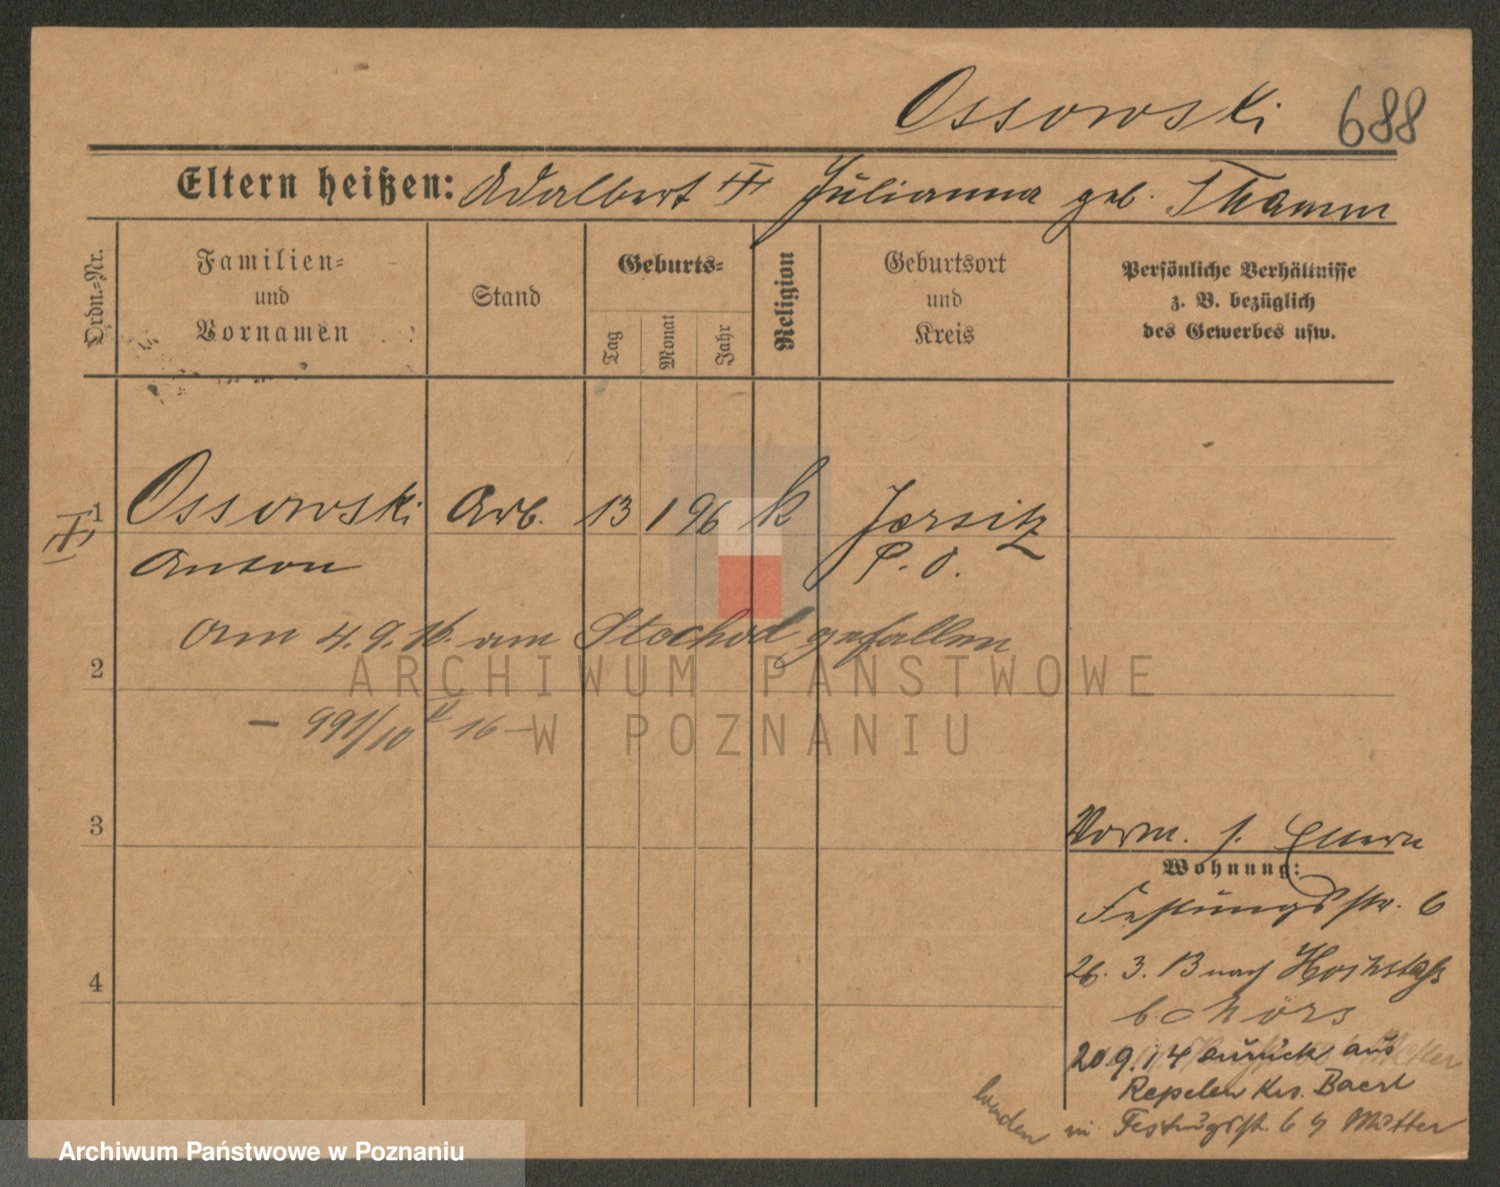 Ossowski 688
Eltern heißen: Adalbert Julianna geb. Thamm
Ordn.-Nr.
Familien-
und
Vornamen
Stand
Geburts-
Tag
Monat
Jahr
Religion
Geburtsort
und
Kreis
Persönliche Verhältnisse
z. B. bezüglich
des Gewerbes usw.
1 Ossowski Arb. 13 1 96 k Jersitz
Anton P. O.
am 4.9.16. am Stochod gefallen
2
- 991/10 16 -
3
Vorm. s. Eltern
Wohnung:
Festungsstr. 6
4
26. 3. 13 nach
b. Mörs
20.9.14 zurück aus
Repelen Krs.
in Festungsstr. 6 Mutter
ARCHIWUM PAŃSTWOWE
W POZNANIU
Archiwum Państwowe w Poznaniu